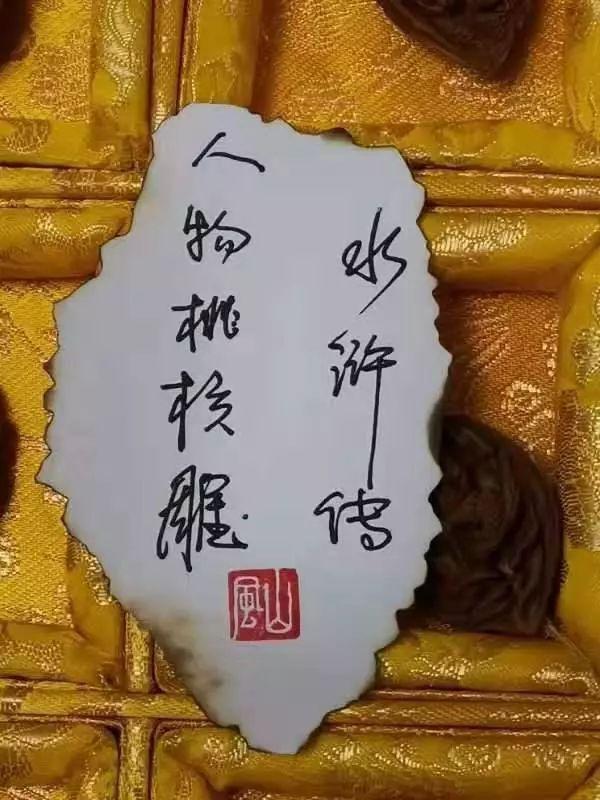 水浒传
人物桃核雕
山风